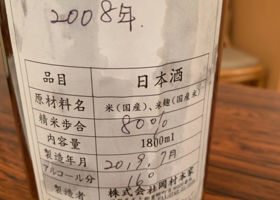 2008年
品目 日本酒
原材料名 米(国産)、米麹(国産米)
精米歩合 80%
内容量 1800ml
製造年月 2019,7月
アルコール分 16°
製造者 株式会社岡村本家